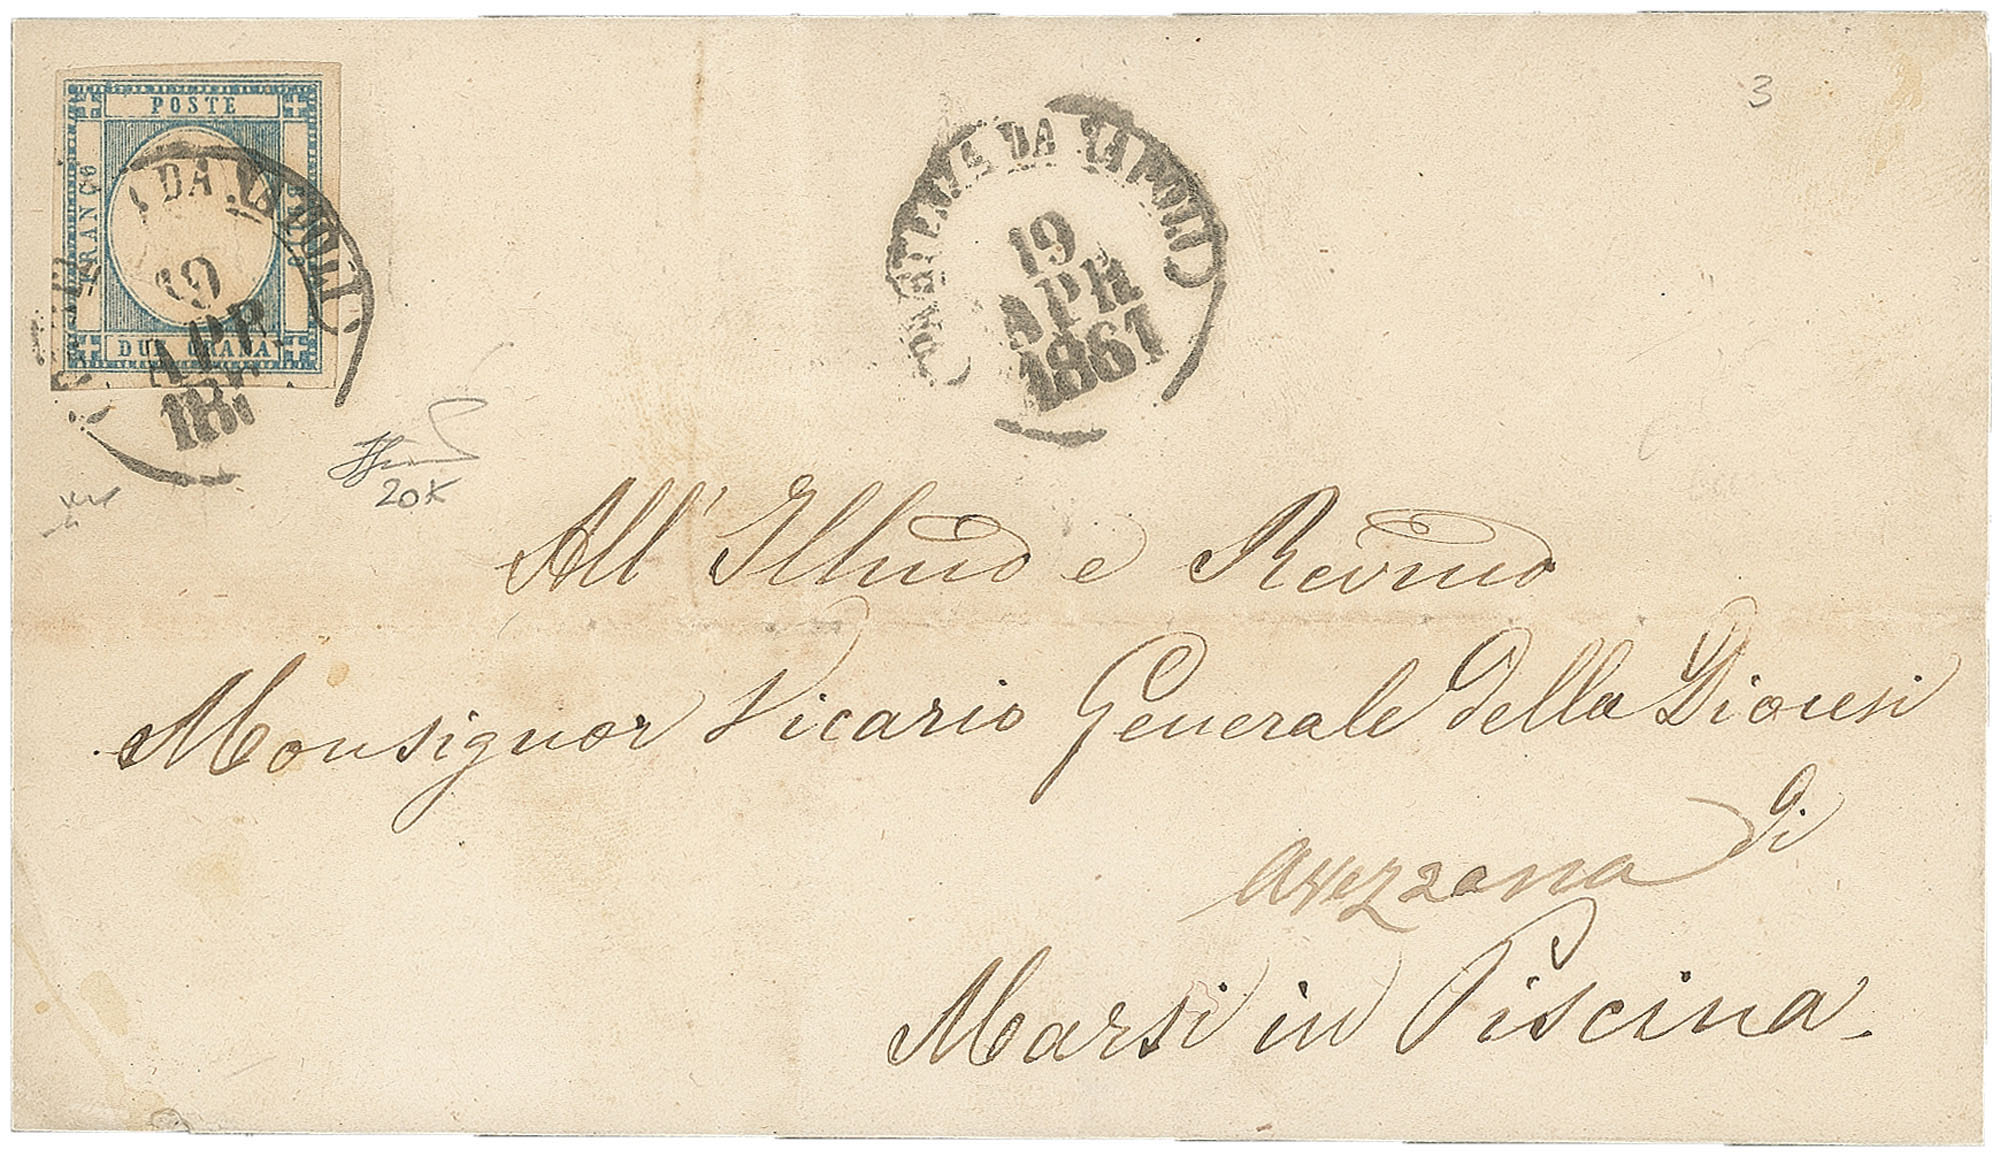 POSTE
FRANCO
BOLLO
DUE GRANA
DA NAPOLI
19
APR
PARTENZA DA NAPOLI
19
APR
1861
3
20K
All' Illmo e Revmo
Monsignor Vicario Generale della Diocesi
di
Avezzana
Marsi in Piscina